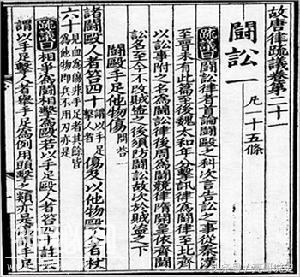 故唐律疏議卷第二十一
鬪訟一 凡一十五條
疏議曰鬪訟律者首論鬪毆之科次言告訟之事從秦漢
至晉未有此篇至後魏太和年分擊訊律爲鬪律至北齊
以訟事附之名爲鬪訟律後周爲鬪競律隋開皇依齊鬪
訟名至今不改賊盜之後須防鬪訟故次賊盜之下
鬪毆手足他物傷 問答一
諸鬪毆人者笞四十謂以手足擊人者傷及以他物毆人者杖
六十見血爲傷非手足者其餘皆爲他物即兵不用刃亦是
疏議曰相爭爲鬪相擊爲毆若以手足毆人者笞四十註云
謂以手足擊人者舉手足爲例用頭擊之類亦是傷謂手足